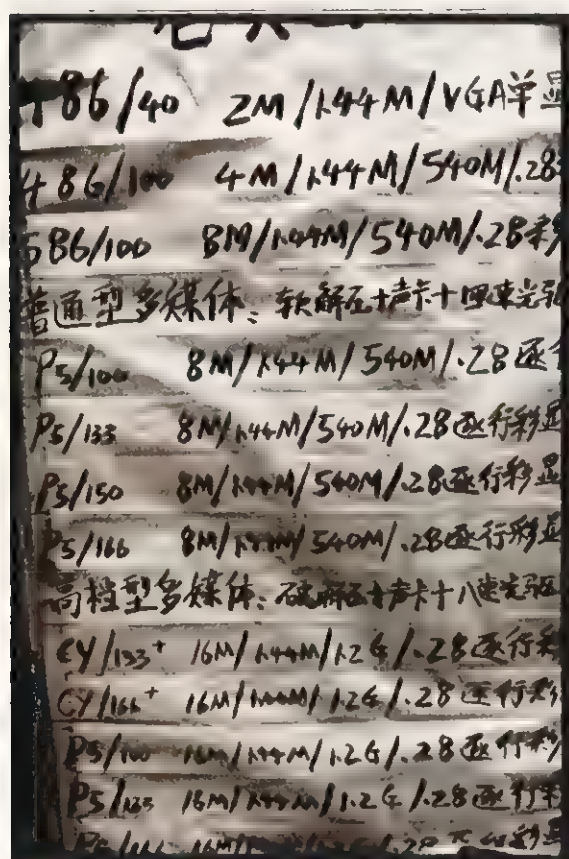 486/40 2M/1.44M/VGA单显
486/100 4M/1.44M/540M/.28彩
586/100 8M/1.44M/540M/.28彩
普通型多媒体:软解压+声卡+四速光驱
P5/100 8M/1.44M/540M/.28逐行
P5/133 8M/1.44M/540M/.28逐行彩显
P5/150 8M/1.44M/540M/.28逐行彩显
P5/166 8M/1.44M/540M/.28逐行彩显
高档型多媒体:硬解压+声卡+八速光驱
CY/133+ 16M/1.44M/1.2G/.28逐行彩
CY/166+ 16M/1.44M/1.2G/.28逐行彩
P5/100 16M/1.44M/1.2G/.28逐行彩
P5/133 16M/1.44M/1.2G/.28逐行彩
P5/166 16M